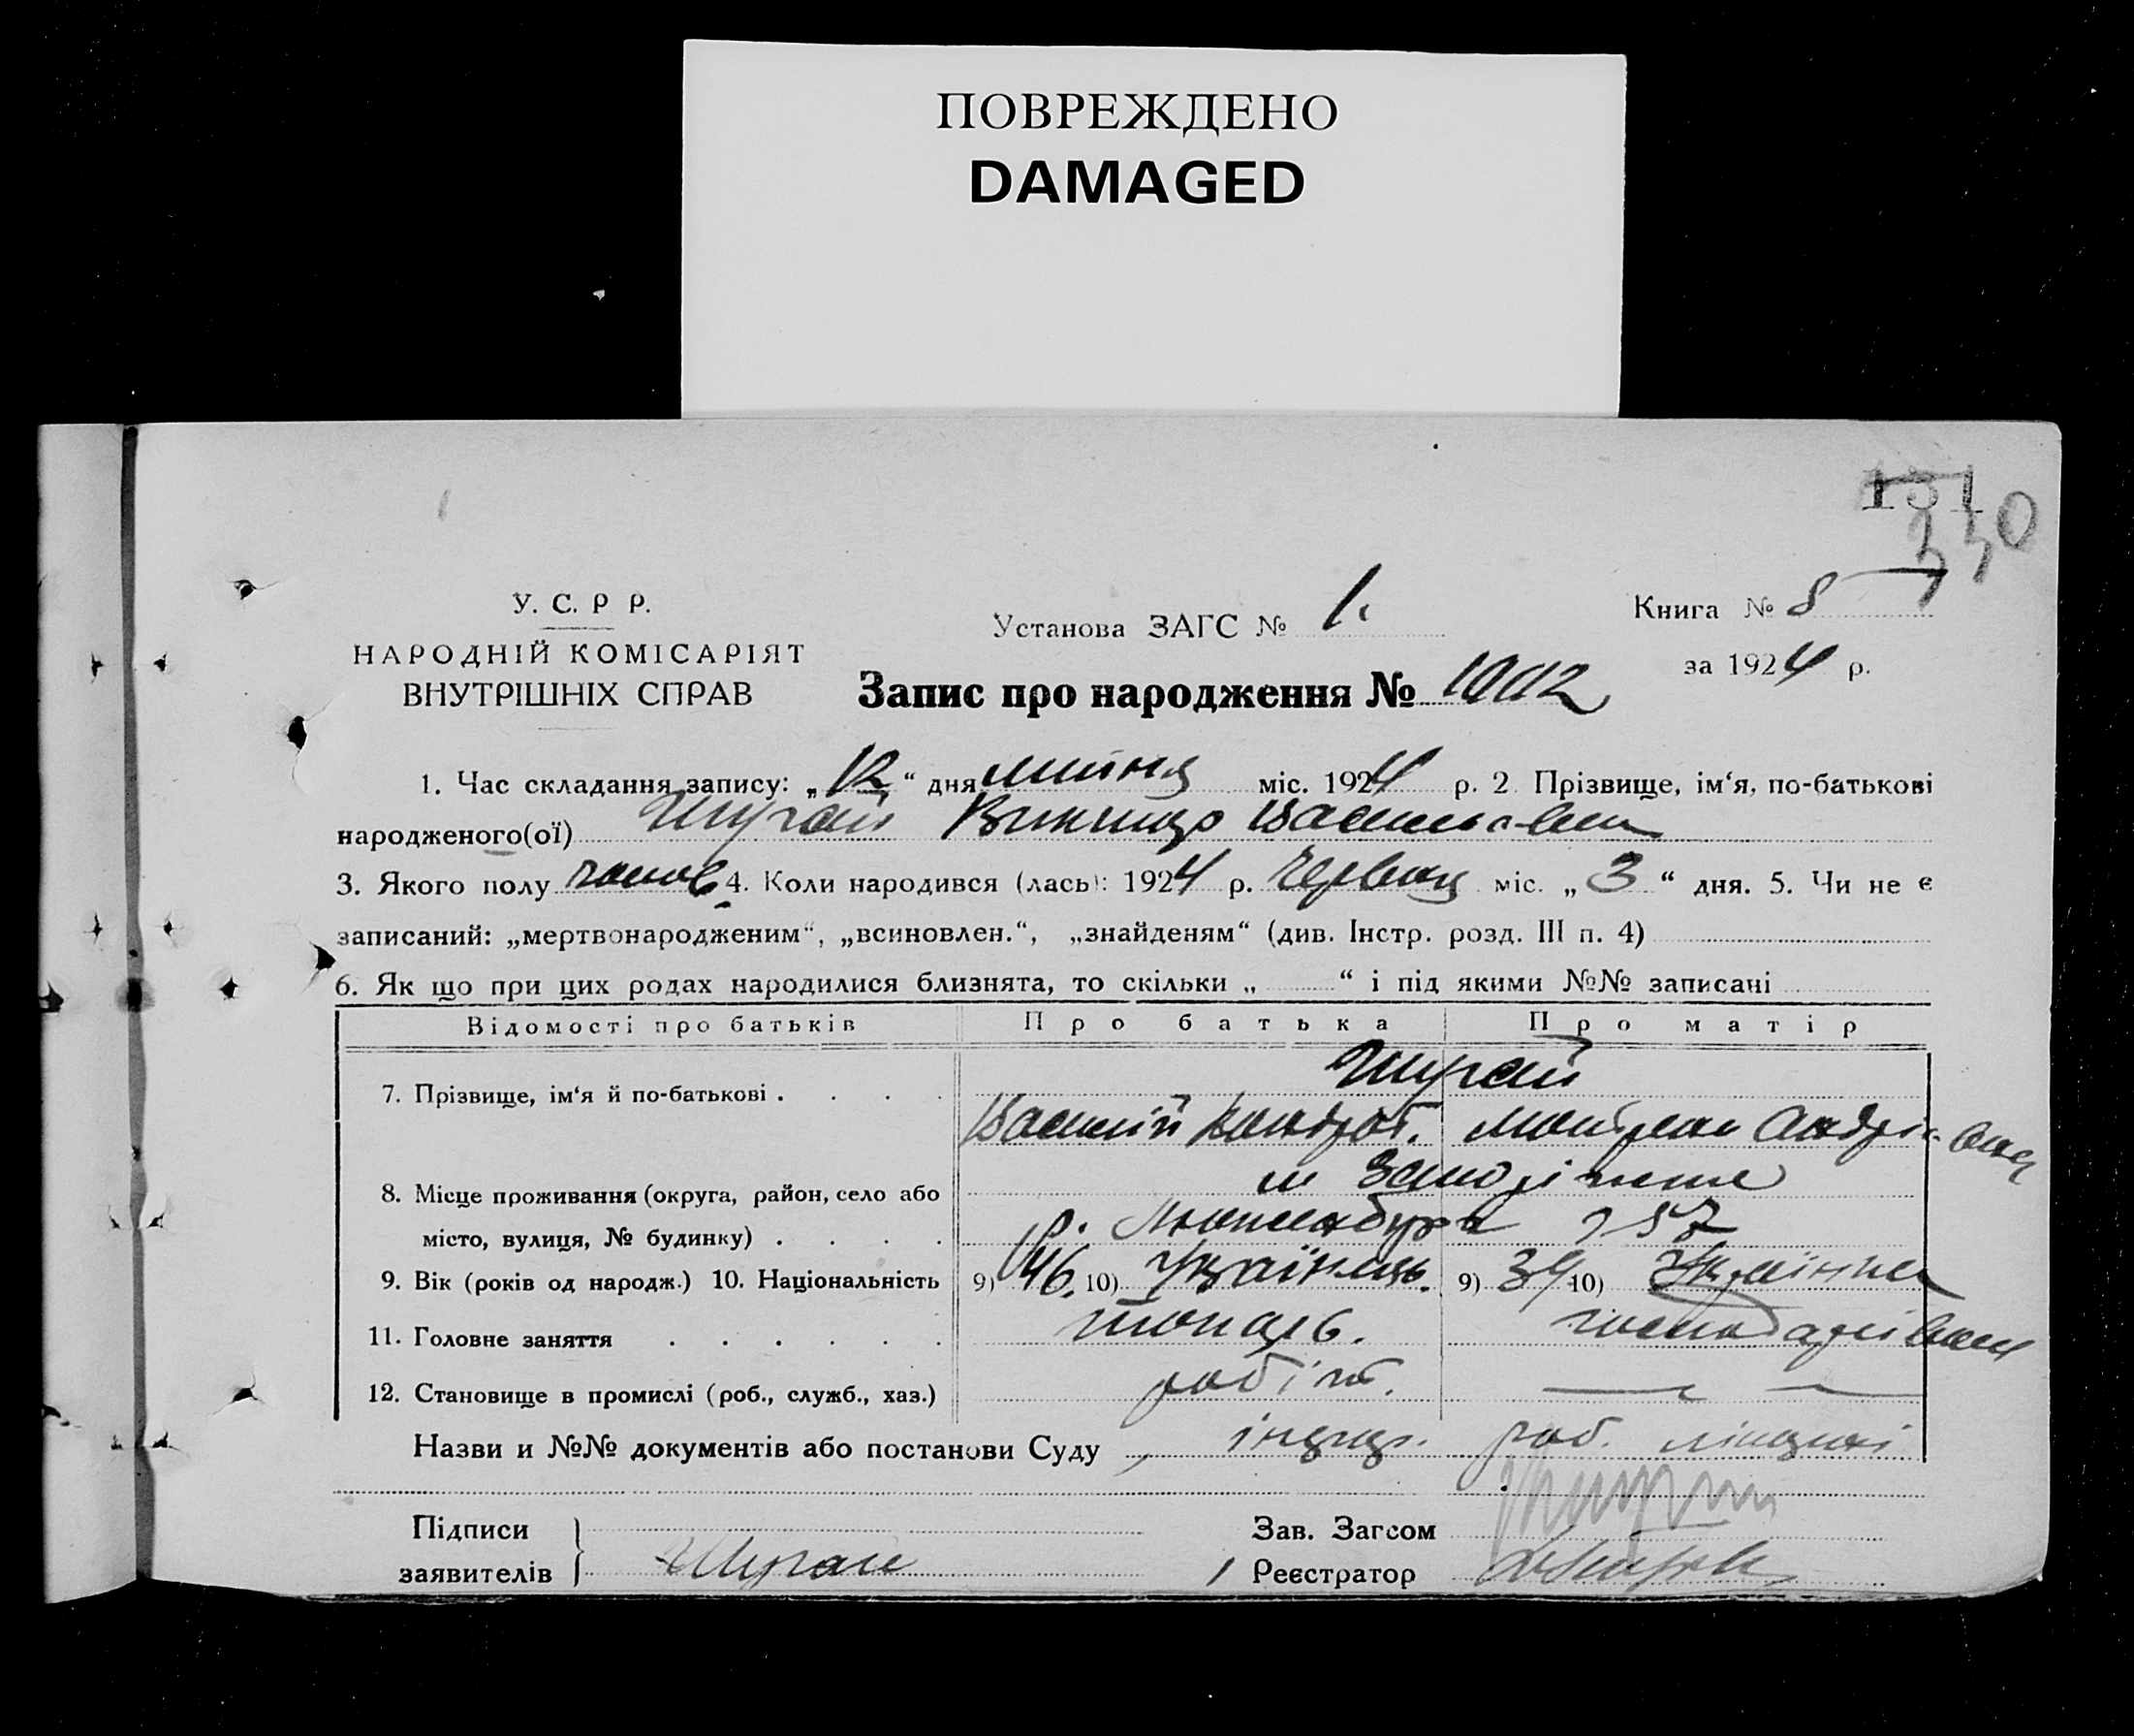 ПОВРЕЖДЕНО
DAMAGED
131
330
У. С. Р Р.
НАРОДНІЙ КОМІСАРІЯТ
ВНУТРІШНІХ СПРАВ
Установа ЗАГС № 1.
Книга № 8
за 1924 р.
Запис про народження № 1002
1. Час складання запису: „12“ дня липня міс. 1924 р. 2. Прізвище, ім‘я, по-батькові
народженого(ої) Шугай
3. Якого полу чолов 4. Коли народився (лась): 1924 р. червня міс. „3“ дня. 5. Чи не є
записаний: „мертвонародженим“, „всиновлен.“, „знайденям“ (див. Інстр. розд. III п. 4)
6. Як що при цих родах народилися близнята, то скільки „ “ і під якими №№ записані
Відомості про батьків Про батька Про матір
Шугай
7. Прізвище, ім‘я й по-батькові . . . .
Василій Кондрат. Мотрона Андріївна
8. Місце проживання (округа, район, село або м Запоріжжє
місто, вулиця, № будинку) . . . . р. Люксембург 157
9. Вік (років од народж.) 10. Національність 9) 46. 10) Українець. 9) 39 10) Українка
11. Головне заняття . . . . . . господарівом
12. Становище в промислі (роб., служб., хаз.) робіт.
Назви и №№ документів або постанови Суду роб.
Підписи
заявителів Шугай
Зав. Загсом
Реєстратор